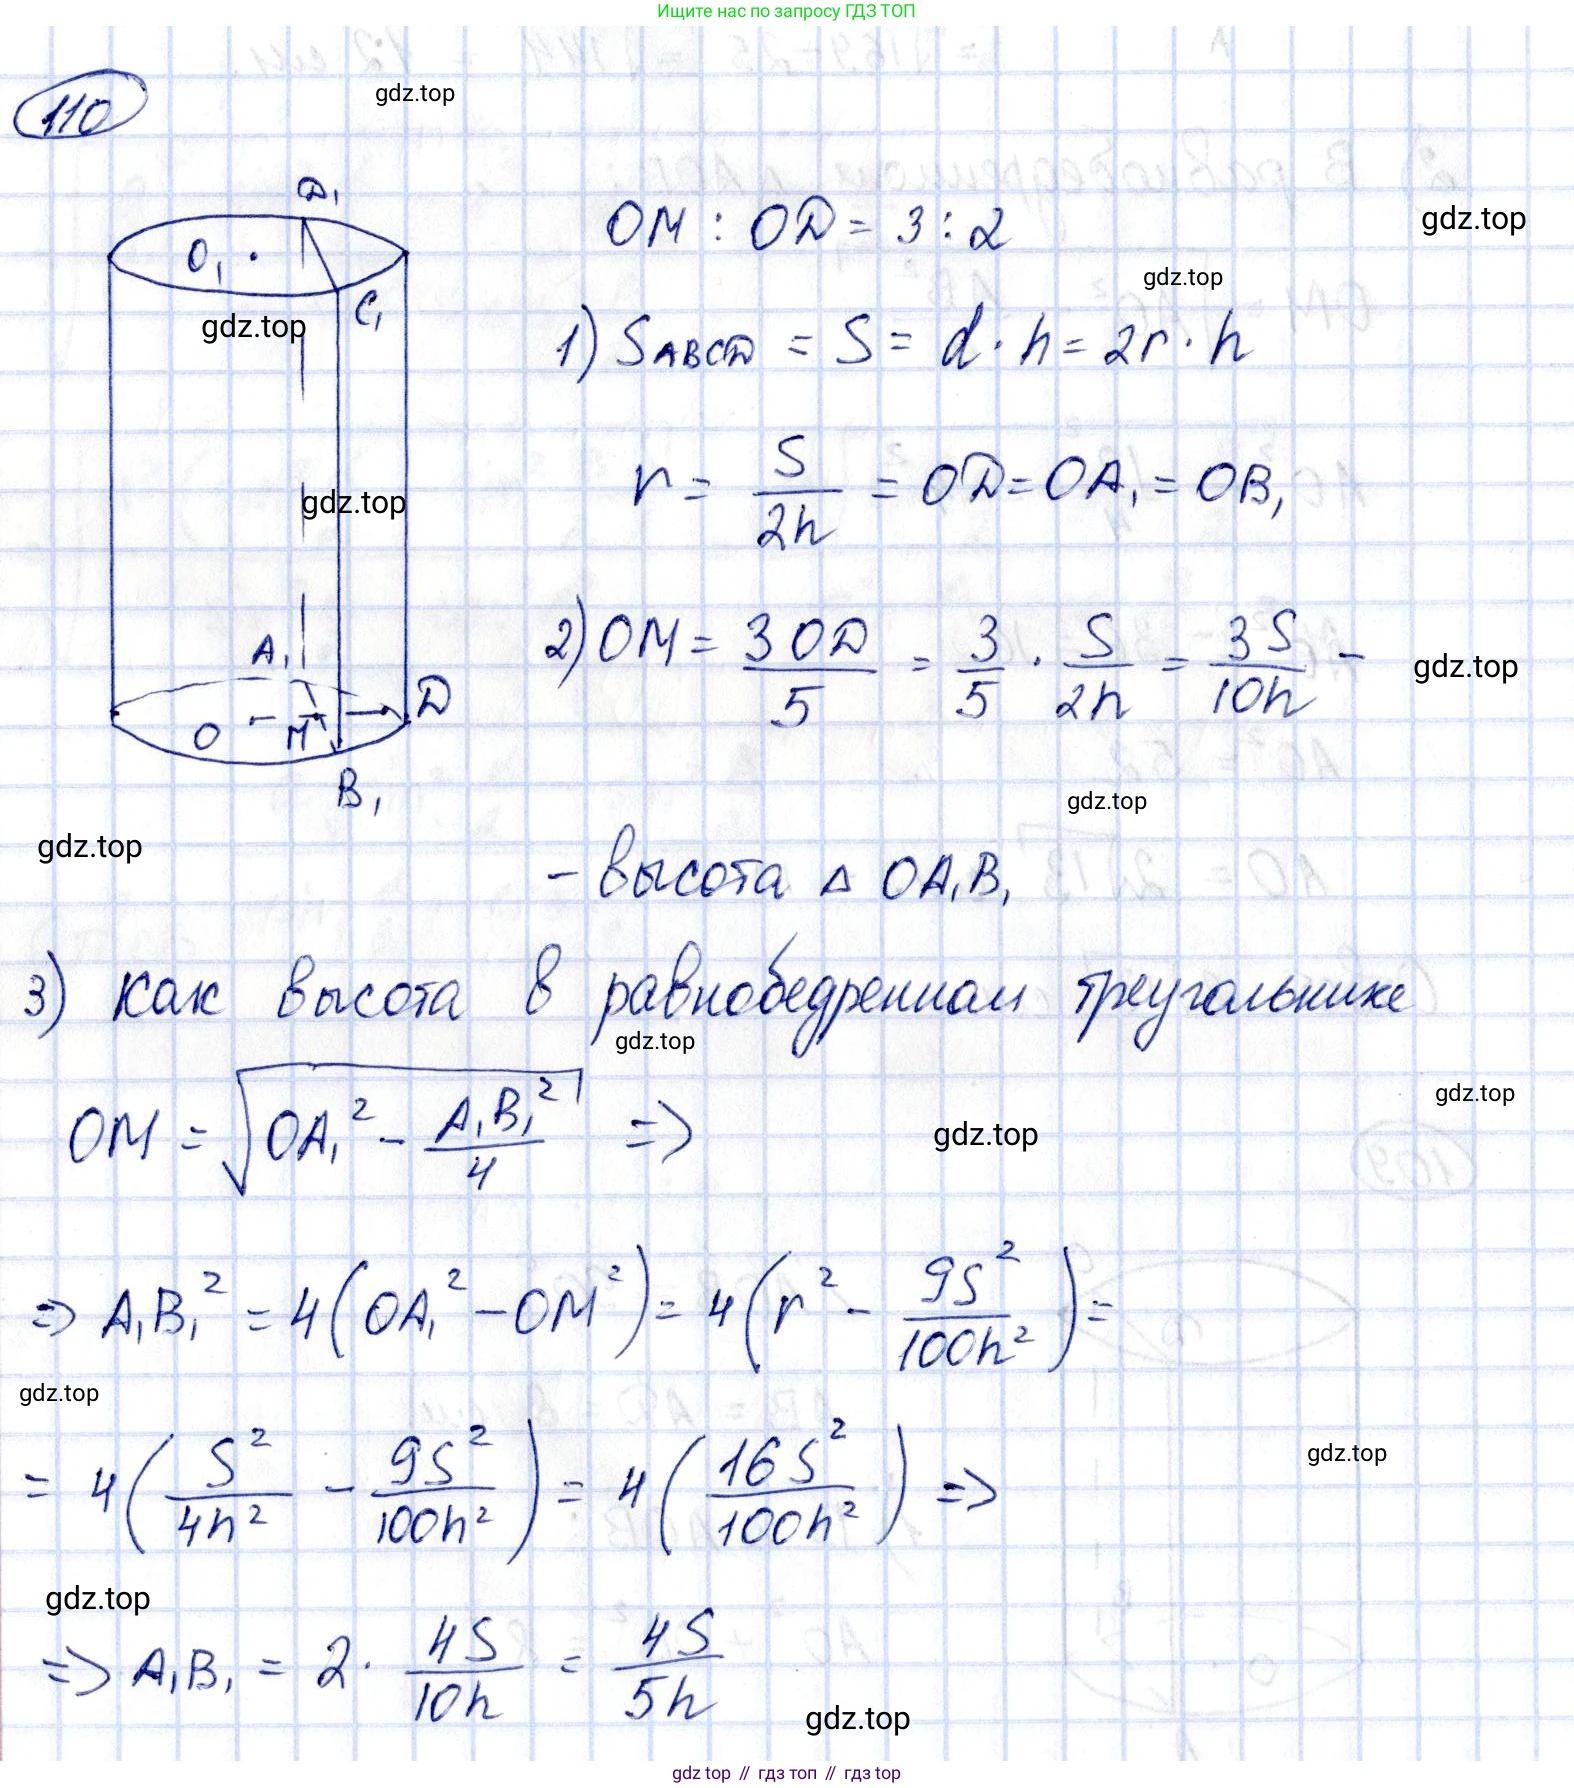 Ищите нас по запросу ГДЗ ТОП
110
gdz.top
D₁
O₁
C₁
gdz.top
gdz.top
A₁
O
M
D
B₁
gdz.top
OM : OD = 3 : 2
gdz.top
gdz.top
1) S_ABCD = S = d · h = 2r · h
r = S/2h = OD = OA₁ = OB₁
2) OM = 3OD/5 = 3/5 · S/2h = 3S/10h –
gdz.top
gdz.top
– высота △ OA₁B₁
3) Как высота в равнобедренном треугольнике
gdz.top
gdz.top
OM = √(OA₁² – A₁B₁²/4) =>
gdz.top
=> A₁B₁² = 4(OA₁² – OM²) = 4(r² – 9S²/100h²) =
gdz.top
= 4(S²/4h² – 9S²/100h²) = 4(16S²/100h²) =>
gdz.top
gdz.top
=> A₁B₁ = 2 · 4S/10h = 4S/5h
gdz.top
gdz top // гдз топ // гдз top